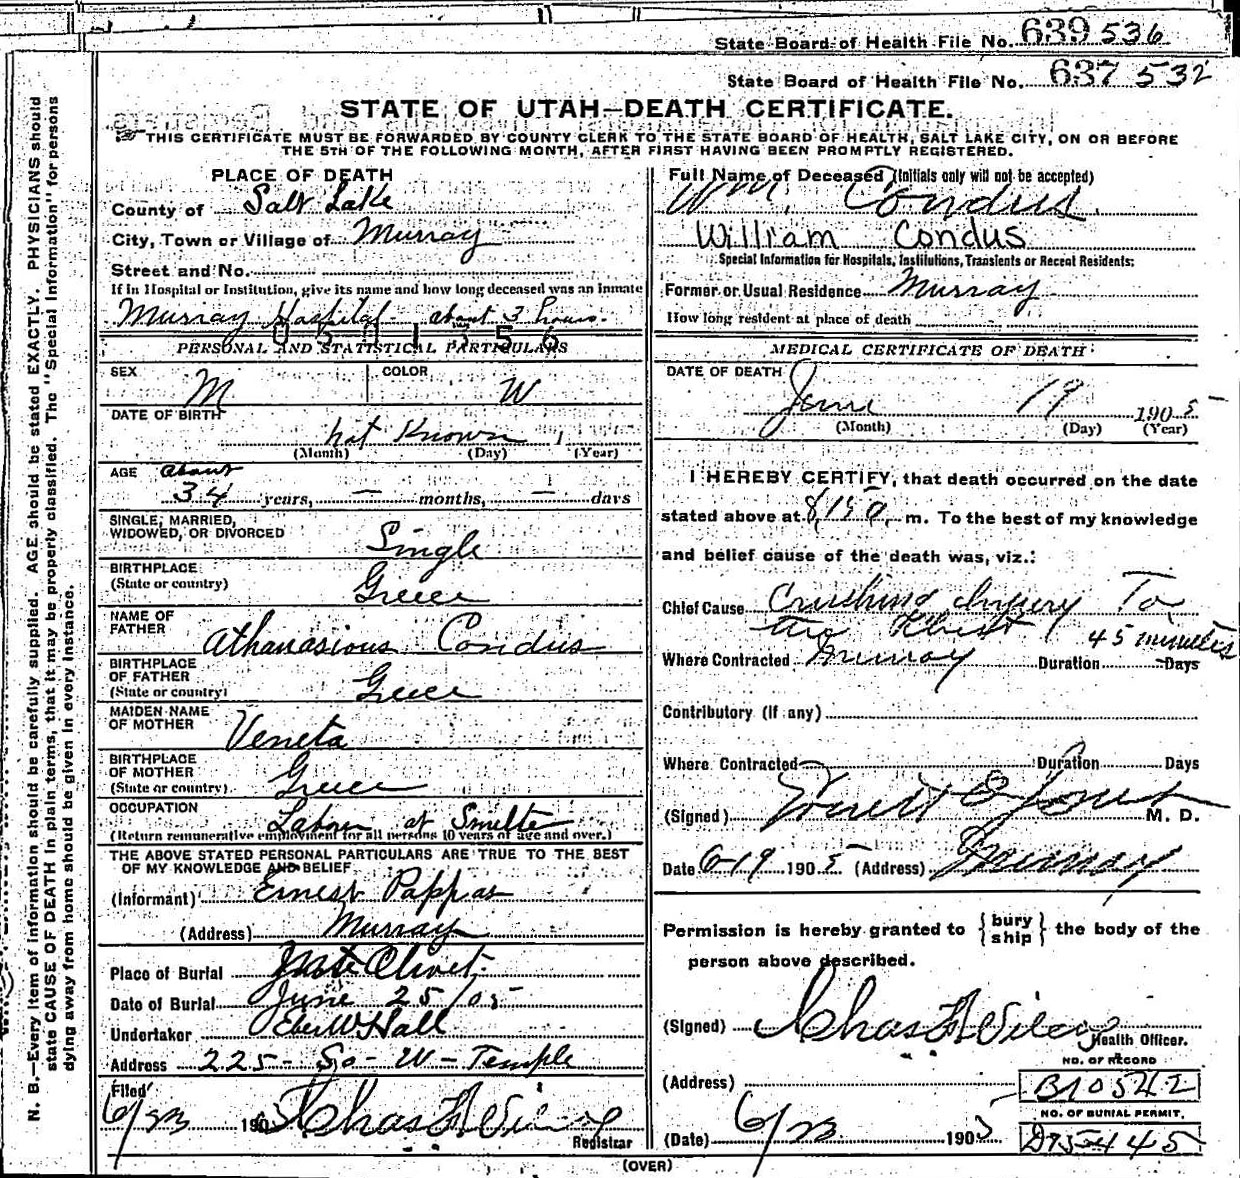 State Board of Health File No. 639 536
State Board of Health File No. 637 532
STATE OF UTAH—DEATH CERTIFICATE.
THIS CERTIFICATE MUST BE FORWARDED BY COUNTY CLERK TO THE STATE BOARD OF HEALTH, SALT LAKE CITY, ON OR BEFORE
THE 5TH OF THE FOLLOWING MONTH, AFTER FIRST HAVING BEEN PROMPTLY REGISTERED.
N. B.—Every item of information should be carefully supplied. AGE should be stated EXACTLY. PHYSICIANS should
state CAUSE OF DEATH in plain terms, that it may be properly classified. The "Special Information" for persons
dying away from home should be given in every instance.
PLACE OF DEATH
County of Salt Lake
City, Town or Village of Murray
Street and No.
If in Hospital or Institution, give its name and how long deceased was an inmate
Murray Hospital about 3 hours.
PERSONAL AND STATISTICAL PARTICULARS
SEX M COLOR W
DATE OF BIRTH not Known 1
(Month) (Day) (Year)
AGE about
34 years, — months, — days
SINGLE, MARRIED,
WIDOWED, OR DIVORCED Single
BIRTHPLACE
(State or country) Greece
NAME OF
FATHER Athanasious Condus
BIRTHPLACE
OF FATHER
(State or country) Greece
MAIDEN NAME
OF MOTHER Veneta
BIRTHPLACE
OF MOTHER
(State or country) Greece
OCCUPATION Labor at Smelter
(Return remunerative employment for all persons 10 years of age and over.)
THE ABOVE STATED PERSONAL PARTICULARS ARE TRUE TO THE BEST
OF MY KNOWLEDGE AND BELIEF
(Informant) Ernest Pappas
(Address) Murray
Place of Burial Mt Olivet.
Date of Burial June 25/05
Undertaker Eber W Hall
Address 225 - So - W - Temple
Filed
6/23 1905 Chas F Wilcox
Registrar
Full Name of Deceased (Initials only will not be accepted)
Wm. Condus.
William Condus
Special Information for Hospitals, Institutions, Transients or Recent Residents:
Former or Usual Residence Murray
How long resident at place of death
MEDICAL CERTIFICATE OF DEATH
DATE OF DEATH
June 19 1905
(Month) (Day) (Year)
I HEREBY CERTIFY, that death occurred on the date
stated above at 8,15 a, m. To the best of my knowledge
and belief cause of the death was, viz.:
Chief Cause Crushing Injury To
the Chest 45 minutes
Where Contracted Murray Duration Days
Contributory (if any)
Where Contracted Duration Days
(Signed) Jones M. D.
Date 6-19 1905 (Address) Murray
Permission is hereby granted to { bury
ship } the body of the
person above described.
(Signed) Chas F Wilcox
Health Officer.
NO. OF RECORD
(Address) B10542
NO. OF BURIAL PERMIT.
(Date) 6/23 1905 D75445
(OVER)